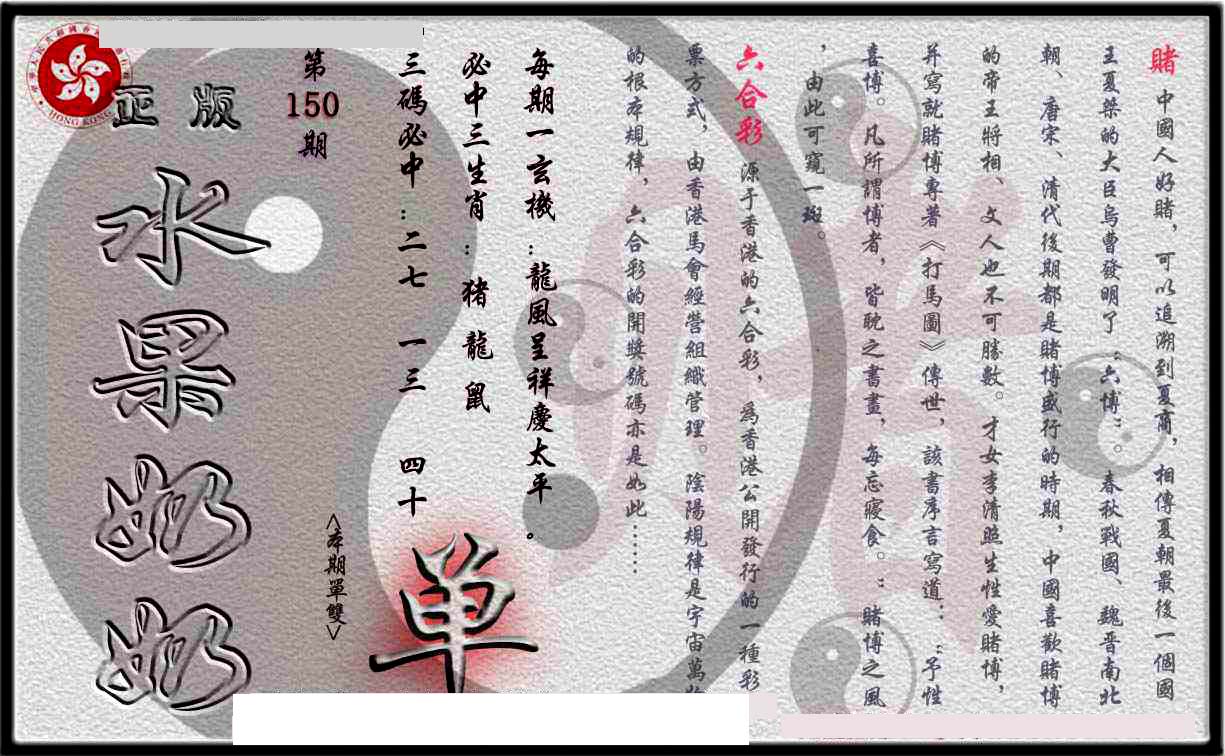 賭 中國人好賭，可以追溯到夏商，相傳夏朝最後一個國
王夏桀的大臣烏曹發明了“六博” 春秋戰國、魏晋南北
朝、唐宋、清代後期都是賭博盛行的時期，中國喜歡賭博
的帝王將相、文人也不可勝數。才女李清照生性愛賭博，
并寫就賭博專著《打馬圖》傳世，該書序言寫道：“予性
喜博。凡所謂博者，皆耽之書畫，每忘寢食。“賭博之風
，由此可窺一斑。
六合彩 源于香港的六合彩，為香港公開發行的一種彩
票方式，由香港馬會經營組織管理。陰陽規律是宇宙萬
的根本規律，六合彩的開獎號碼亦是如此……
每期一玄機：龍風呈祥慶太平。
必中三生肖：猪 龍 鼠
三碼必中：二七 一三 四十
<本期單雙>
单
第150期
正版
水果奶奶
HONG KONG